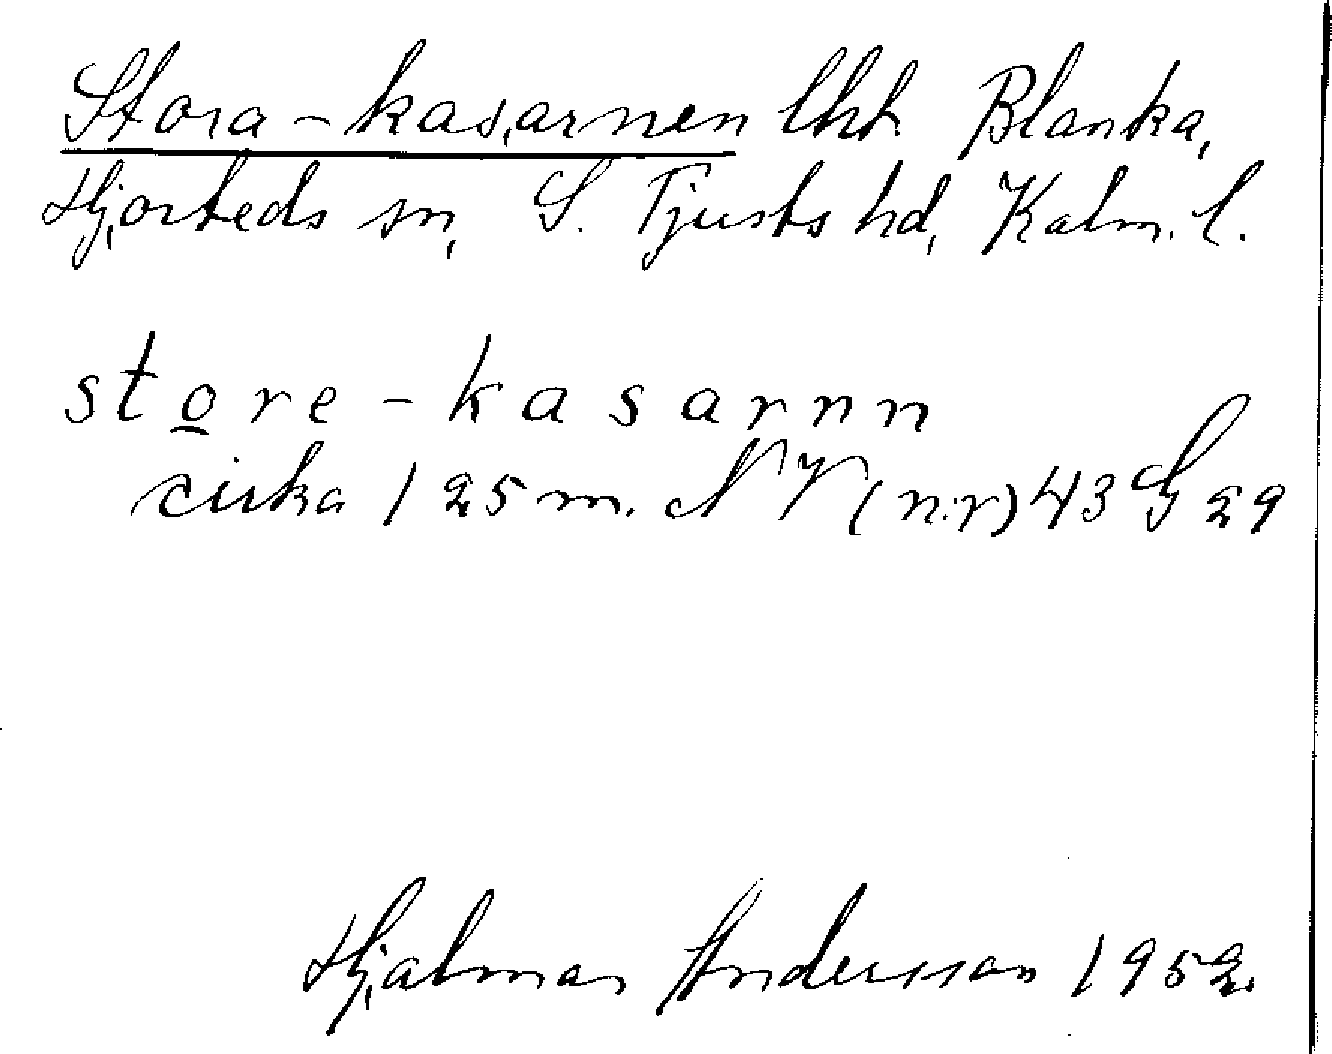 Stora-kasarnen lht Blanka,
Hjorteds sn, S. Tjusts hd, Kalm. l.
store-kasarnn
cirka 125 m. NV (n.r) 43 G 29
Hjalmar Andersson 1952.